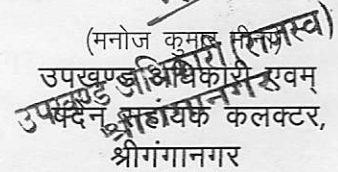 (मनोज कुमार मीना)
उपखण्ड अधिकारी एवम्
पदेन सहायक कलक्टर,
श्रीगंगानगर
उपखण्ड अधिकारी (राजस्व)
श्रीगंगानगर